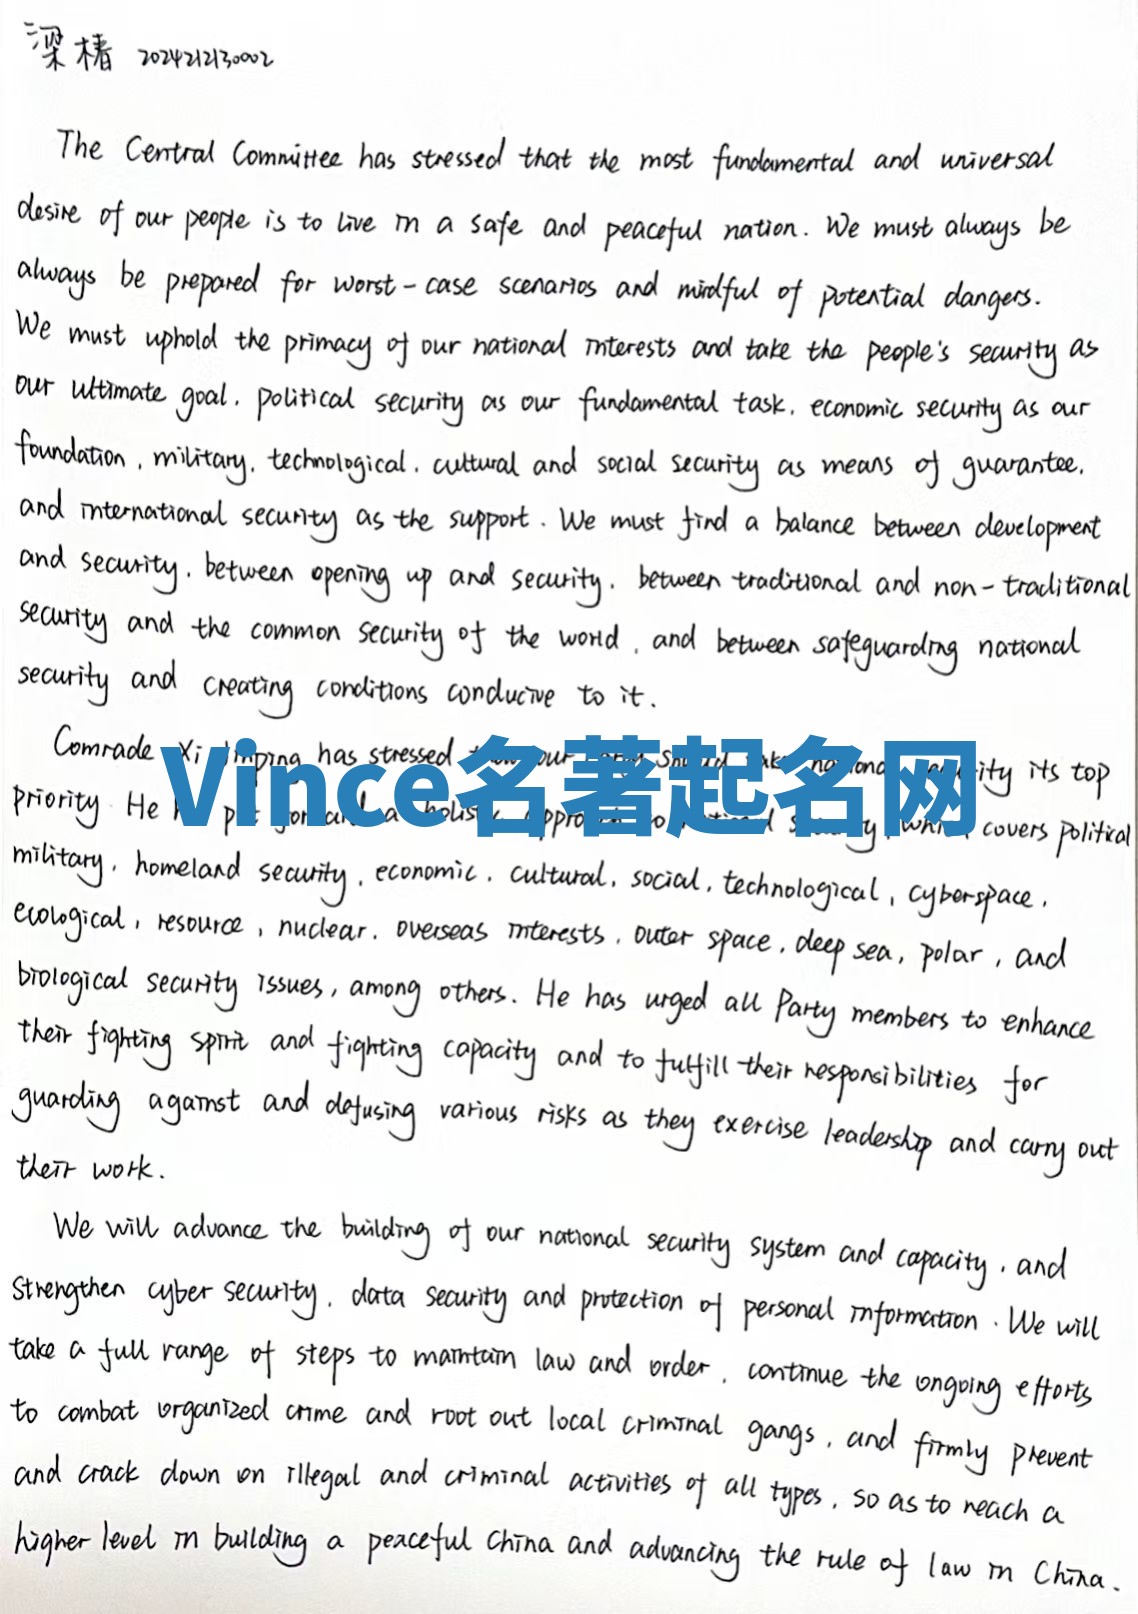 梁椿 2024212130002
The Central Committee has stressed that the most fundamental and universal
desire of our people is to live in a safe and peaceful nation. We must always be
always be prepared for worst-case scenarios and mindful of potential dangers.
We must uphold the primacy of our national interests and take the people's security as
our ultimate goal, political security as our fundamental task, economic security as our
foundation, military, technological, cultural and social security as means of guarantee,
and international security as the support. We must find a balance between development
and security, between opening up and security, between traditional and non-traditional
security and the common security of the world, and between safeguarding national
security and creating conditions conducive to it.
Comrade Xi Jinping has stressed our its top
Vince名著起名网
priority. He a covers political
military, homeland security, economic, cultural, social, technological, cyberspace,
ecological, resource, nuclear, overseas interests, outer space, deep sea, polar, and
biological security issues, among others. He has urged all Party members to enhance
their fighting spirit and fighting capacity and to fulfill their responsibilities for
guarding against and defusing various risks as they exercise leadership and carry out
their work.
We will advance the building of our national security system and capacity, and
strengthen cyber security, data security and protection of personal information. We will
take a full range of steps to maintain law and order, continue the ongoing efforts
to combat organized crime and root out local criminal gangs, and firmly prevent
and crack down on illegal and criminal activities of all types, so as to reach a
higher level in building a peaceful China and advancing the rule of law in China.